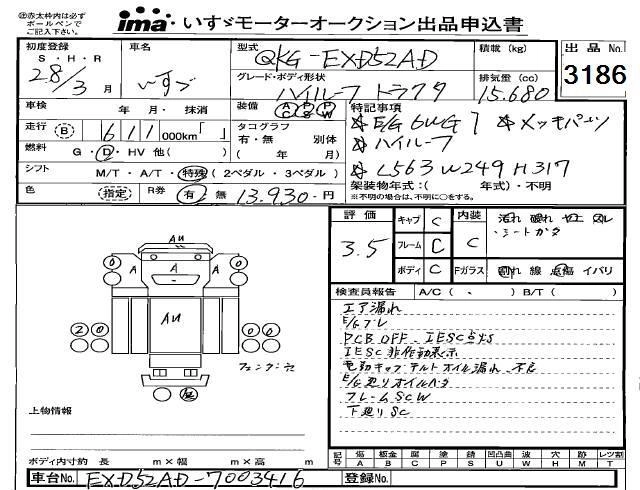 ㊟赤太枠内は必ず
ボールペンで
ご記入下さい。
ima いすゞモーターオークション出品申込書
初度登録
S・H・R
28/3 月
車名
いすゞ
型式
QKG-EXD52AD
グレード・ボディ形状
ハイルーフ トラクタ
積載 (kg)
排気量 (cc)
15.680
出品No.
3186
車検 年・月・抹消
装備 AC PS PW
特記事項
走行 (B) 611 000km「 」
タコグラフ
有・無 別体
( 年 月)
燃料 G・D・HV 他( )
シフト M/T・A/T・特殊 (2ペダル・3ペダル)
色 (指定)
R券 有 無 13.930-円
※E/G 6WG1 ※メッキパーツ
※ハイルーフ
※L563 W249 H317
架装物年式:( 年式)・不明
※不明の場合は、不明に○をする。
評価
3.5
キャブ C
フレーム C
ボディ C
内装 C
汚れ 破れ ヤニ スレ
・シートガタ
Fガラス 割れ 線 点傷 イバリ
検査員報告 A/C( 、 ) B/T( )
エア漏れ
E/Gブレ
PCB OFF、IESC点灯
IESC非作動表示
電動キャブチルトオイル漏れ、不良
E/G廻りオイルハネ
フレームSCW
下廻りSC
AU
0 A A 0
0 A 0
AU
2 0 0 2
フェンダーウエ
上物情報
ボディ内寸約 長 m×幅 m×高 m
記号 傷A 板金B 腐C 塗P 錆S 凹凸曲U 波W 穴H 跡M レツ割T
車台No. EXD52AD-7003416
登録No.